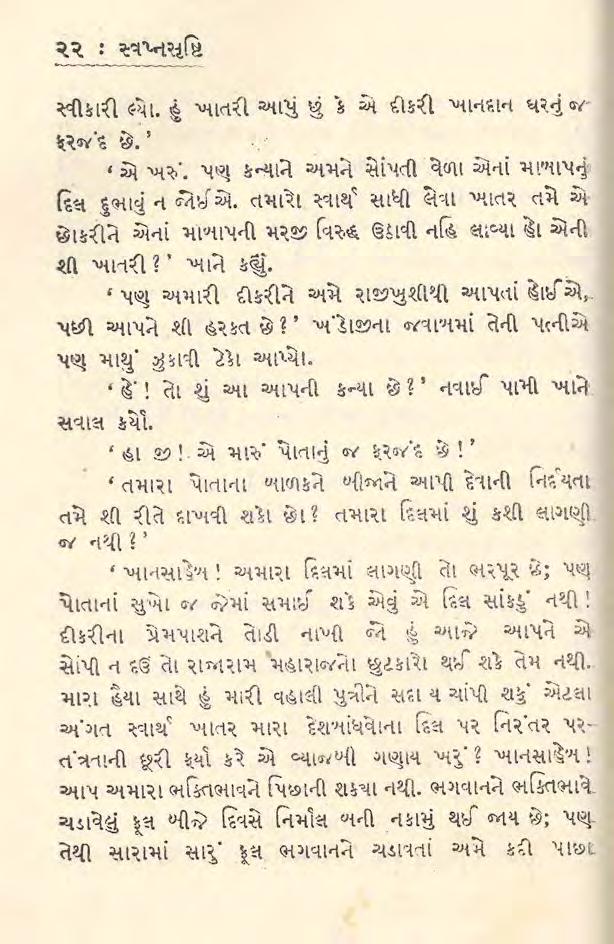 ૨૨ : સ્વપ્નસૃષ્ટિ
સ્વીકારી લ્યો. હું ખાતરી આપું છું કે એ દીકરી ખાનદાન ઘરનું જ
ફરજંદ છે.’
‘ એ ખરું. પણ કન્યાને અમને સોંપતી વેળા એનાં માબાપનું
દિલ દુભાવું ન જોઈએ. તમારો સ્વાર્થ સાધી લેવા ખાતર તમે એ
છોકરીને એનાં માબાપની મરજી વિરુદ્ધ ઉઠાવી નહિ લાવ્યા હો એની
શી ખાતરી ? ’ ખાને કહ્યું.
‘ પણ અમારી દીકરીને અમે રાજીખુશીથી આપતાં હોઈએ,
પછી આપને શી હરકત છે ? ’ ખંડોજીના જવાબમાં તેની પત્નીએ
પણ માથું ઝુકાવી ટેકો આપ્યો.
‘ હેં ! તો શું આ આપની કન્યા છે ? ’ નવાઈ પામી ખાને
સવાલ કર્યો.
‘ હા જી ! એ મારું પોતાનું જ ફરજંદ છે ! ’
‘ તમારા પોતાના બાળકને બીજાને આપી દેવાની નિર્દયતા
તમે શી રીતે દાખવી શકો છો ? તમારા દિલમાં શું કશી લાગણી
જ નથી ? ’
‘ ખાનસાહેબ ! અમારા દિલમાં લાગણી તો ભરપૂર છે; પણ
પોતાનાં સુખો જ જેમાં સમાઈ શકે એવું એ દિલ સાંકડું નથી !
દીકરીના પ્રેમપાશને તોડી નાખી જો હું આજે આપને એ
સોંપી ન દઉં તો રાજારામ મહારાજનો છુટકારો થઈ શકે તેમ નથી.
મારા હૈયા સાથે હું મારી વહાલી પુત્રીને સદા ય ચાંપી શકું એટલા
અંગત સ્વાર્થ ખાતર મારા દેશબાંધવોના દિલ પર નિરંતર પર-
તંત્રતાની છૂરી ફર્યા કરે એ વ્યાજબી ગણાય ખરું ? ખાનસાહેબ !
આપ અમારા ભક્તિભાવને પિછાની શકયા નથી. ભગવાનને ભક્તિભાવે
ચડાવેલું ફૂલ બીજે દિવસે નિર્માલ બની નકામું થઈ જાય છે; પણ
તેથી સારામાં સારું ફૂલ ભગવાનને ચડાવતાં અમે કદી પાછા